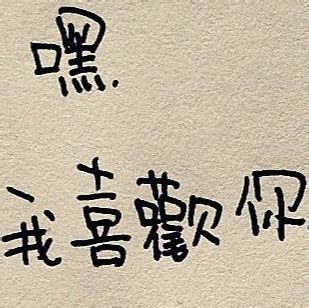 嘿.
我喜歡你